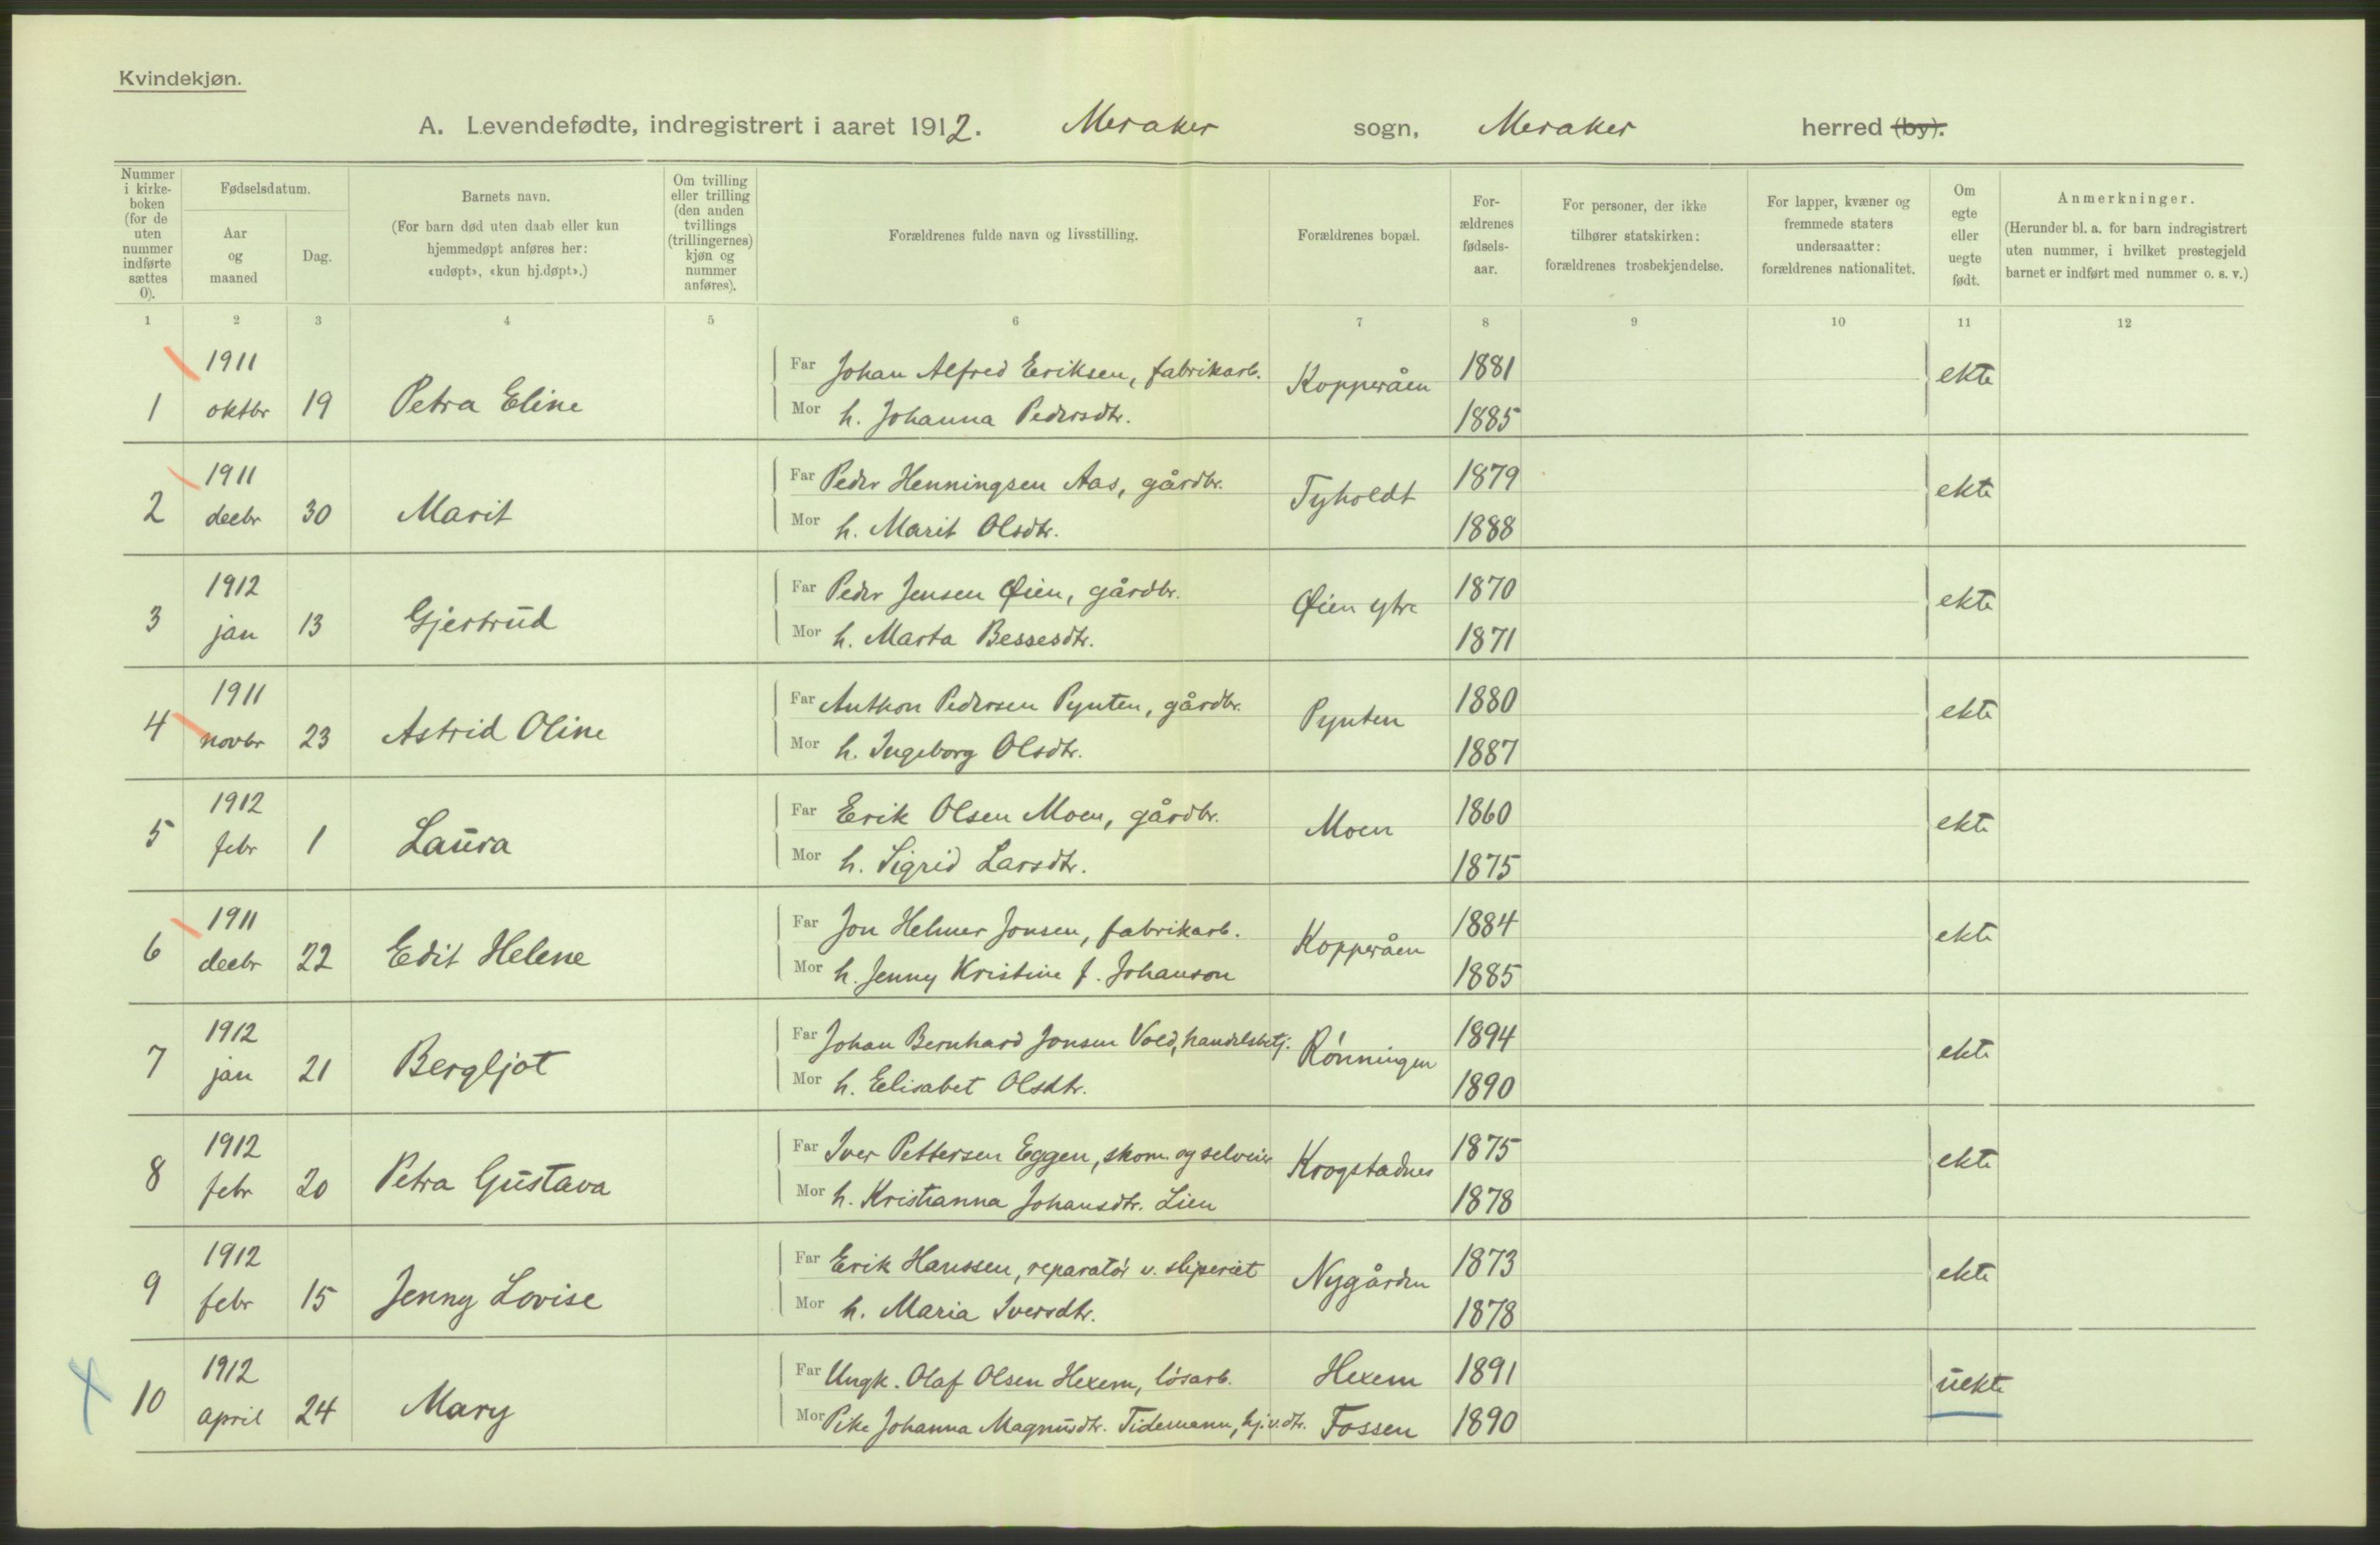 Kvindekjøn.
A. Levendefødte, indregistrert i aaret 1912. Meraker sogn, Meraker herred (by).
Nummer i kirke-boken (for de uten nummer indførte sættes 0).
Fødselsdatum.
Aar og maaned
Dag.
Barnets navn.
(For barn død uten daab eller kun hjemmedøpt anføres her: «udøpt», «kun hj.døpt».)
Om tvilling eller trilling (den anden tvillings (trillingernes) kjøn og nummer anføres).
Forældrenes fulde navn og livsstilling.
Forældrenes bopæl.
For-ældrenes fødsels-aar.
For personer, der ikke tilhører statskirken: forældrenes trosbekjendelse.
For lapper, kvæner og fremmede staters undersaatter: forældrenes nationalitet.
Om egte eller uegte født.
Anmerkninger.
(Herunder bl. a. for barn indregistrert uten nummer, i hvilket prestegjeld barnet er indført med nummer o. s. v.)
1 2 3 4 5 6 7 8 9 10 11 12
1911 Far Johan Alfred Eriksen, fabrikarb. Kopperåen 1881 ekte
1 oktbr 19 Petra Eline Mor h. Johanna Pedersdtr. 1885
1911 Far Peder Henningsen Aas, gårdbr. Tyholdt 1879 ekte
2 decbr 30 Marit Mor h. Marit Olsdtr. 1888
1912 Far Peder Jensen Øien, gårdbr. Øien ytre 1870 ekte
3 jan 13 Gjertrud Mor h. Marta Bessesdtr. 1871
1911 Far Anthon Pedersen Pynten, gårdbr. Pynten 1880 ekte
4 novbr 23 Astrid Oline Mor h. Ingeborg Olsdtr. 1887
1912 Far Erik Olsen Moen, gårdbr. Moen 1860 ekte
5 febr 1 Laura Mor h. Sigrid Larsdtr. 1875
1911 Far Jon Helmer Jonsen, fabrikarb. Kopperåen 1884 ekte
6 decbr 22 Edit Helene Mor h. Jenny Kristine f. Johanson 1885
1912 Far Johan Bernhard Jonsen Vold, handelsbetj. Rönningen 1894 ekte
7 jan 21 Bergljot Mor h. Elisabet Olsdtr. 1890
1912 Far Iver Pettersen Eggen, skom. og selveier Krogstadnes 1875 ekte
8 febr 20 Petra Gustava Mor h. Kristianna Johansdtr. Lien 1878
1912 Far Erik Hanssen, reparatör v. sliperiet Nygården 1873 ekte
9 febr 15 Jenny Lovise Mor h. Maria Iversdtr. 1878
1912 Far Ungk. Olaf Olsen Hexem, lösarb. Hexem 1891 uekte
10 april 24 Mary Mor Pike Johanna Magnusdtr. Tidemann, hj.v.dtr. Fossen 1890